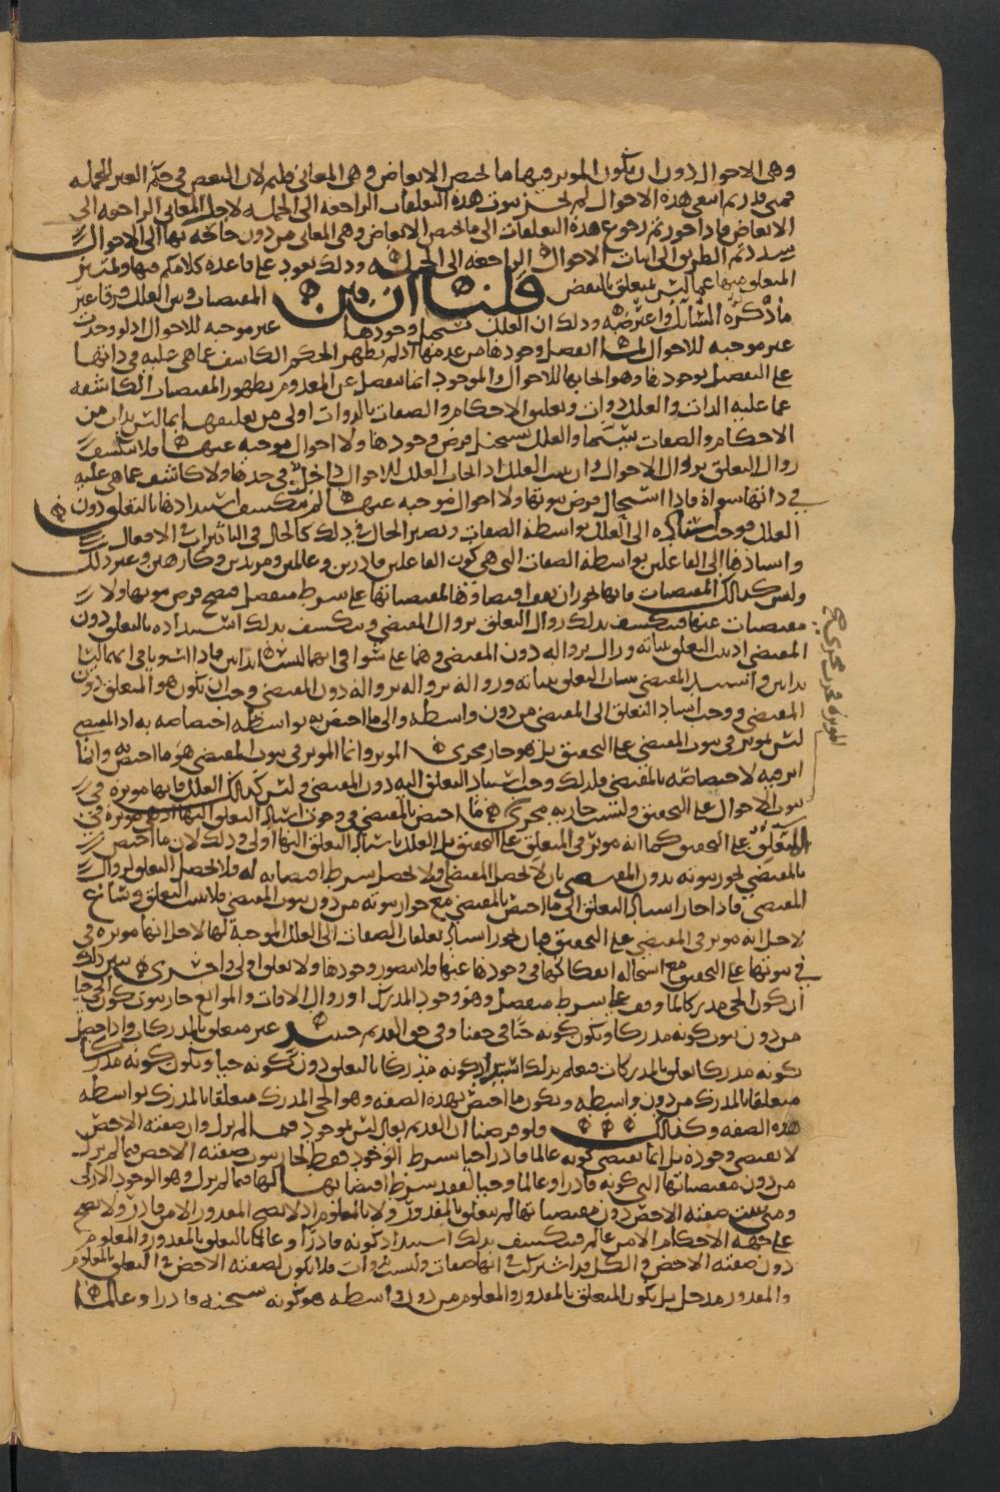 وهي الاحوال دون ان يكون الموثر فيها ما يختص الابعاض وهي المعاني قلتم لان البعض في حكم الغير للجمله
فمتى قلتم انتفى هذه الاحوال لم يجز ثبوت هذه التعلقات الراجعه الى الجمله لاجل المعاني الراجعه الى
الابعاض فاذا جوزتم رجوع هذه التعلقات الى ما يختص الابعاض وهي المعاني من دون حاجه بها الى الاحوال
سددتم الطريق الى اثبات الاحوال الراجعه الى الجمله وذلك يعود على قاعدة كلامكم فيها ولم يتميز
المتعلق منها عما ليس بمتعلق بالبعض قلنا ان بين المقتضيات وبين العلل فرقا غير
ما ذكره السائل واعترضه وذلك ان العلل يستحيل وجودها غير موجبه للاحوال اذ لو وجدت
غير موجبه للاحوال لما انفصل وجودها من عدمها اذ لم يظهر الحكم الكاشف عما هي عليه في ذاتها
على التفصيل بوجودها وهو ايجابها للاحوال والموجود انما ينفصل عن المعدوم بظهور المقتضيات الكاشفه
عما عليه الذات والعلل ذوات وتعليق الاحكام والصفات بالذوات اولى من تعليقها بما ليس بذات من
الاحكام والصفات والعلل يستحيل فرض وجودها ولا احوال موجبه عنها فلا ينكشف
زوال التعلق بزوال الاحوال وان العلل اذ ايجاب العلل للاحوال داخل في حدها ولا كاشف عما هي عليه
في ذاتها سواه فاذا استحال فرض ثبوتها ولا احوال موجبه عنها لم ينكشف استبدادها بالتعلق دون
العلل فوجب اسناده الى العلل بواسطه الصفات ويصير الحال في ذلك كالحال في التاثيرات في الافعال
واسنادها الى الفاعلين بواسطه الصفات التي هي كون الفاعلين قادرين وعالمين ومريدين وكارهين وغير ذلك
وليس كذلك المقتضيات فانها يجوز ان يقف اقتضاوها لمقتضياتها على شرط منفصل فيصح فرض ثبوتها ولا
مقتضيات عنها فينكشف بذلك زوال التعلق بزوال المقتضي وينكشف بذلك استبداده بالتعلق دون
المقتضي اذ ثبت التعلق بثباته وزال بزواله دون المقتضي وهما على سوا في انهما ليسا بذاتين فاذا استويا في انهما ليسا
بذاتين واستبد المقتضي بثبات التعلق بثباته وزواله بزواله دون المقتضي وجب ان يكون هو المتعلق دون
المقتضي ووجب اسناد التعلق الى المقتضي من دون واسطه والى ما اختص به بواسطه اختصاصه به اذ المقتضي
ليس بموثر في ثبوت المقتضي على التحقيق بل هو جار مجرى الموثر وانما الموثر في ثبوت المقتضي هو ما اختص به وانما
اثر فيه لاختصاصه بالمقتضي فلذلك وجب اسناد التعلق اليه دون المقتضي وليس كذلك العلل فانها موثرة في
ثبوت الاحوال على التحقيق وليست جاريه مجرى ما اختص بالمقتضي في وجوب اسناد التعلق اليها اذ هي موثرة في
المتعلق على التحقيق كما انه موثر في المتعلق على التحقيق بل العلل باسناد التعلق اليها اولى وذلك لان ما اختص
بالمقتضي يجوز ثبوته بدون المقتضي بان لا يحصل المقتضي ولا يحصل شرط اقتضايه له فلا يحصل التعلق لزوال
المقتضي فاذا جاز اسناد التعلق الى ما اختص بالمقتضي مع جواز ثبوته من دون ثبوت المقتضي فلا يثبت التعلق وشاع
لاجل انه موثر في المقتضي على التحقيق فبان يجوز اسناد تعلقات الصفات الى العلل الموجبة لها لاجل انها موثره في
في ثبوتها على التحقيق مع استحاله انفكاكها في وجودها عنها فلا يتصور وجودها ولا تعلق اولى واحرى يبين ذلك
ان كون الحي مدركا لما وقف على شرط منفصل وهو وجود المدرك او زوال الافات والموانع جاز ثبوت كون الحي حيا
من دون ثبوت كونه مدركا ويكون كونه حيا في حقنا وفي حق القديم حينئذ غير متعلق بالمدركات واذا حصل
بكونه مدركا تعلق بالمدركات فيعلم بذلك استبداد كونه مدركا بالتعلق دون كونه حيا ويكون كونه مدركا
متعلقا بالمدرك من دون واسطه ويكون ما اختص بهذه الصفه وهو الحي المدرك متعلقا بالمدرك بواسطه
هذه الصفه وكذلك فلو فرضنا ان القديم تعالى ليس بموجود فيما لم يزل وان صفته الاخص
لا تقتضي وجوده بل انما تقتضي كونه عالما قادرا حيا بشرط الوجود فقط لجاز ثبوت صفته الاخص فيما لم يزل
من دون مقتضياتها التي كونه قادرا وعالما وحيا لفقد شرط اقتضايها اياها فيما لم يزل وهو الوجود الازلي
ومتى ثبتت صفته الاخص دون مقتضياتها لم يتعلق بالمقدور ولا بالمعلوم اذ لا يصح المقدور الا من قادر ولا يصح
على جهه الاحكام الا من عالم فينكشف بذلك استبداد كونه قادرا وعالما بالتعلق بالمقدور والمعلوم
دون صفته الاخص والكل قد اشتركت في انها صفات وليست بذوات فلا يكون لصفته الاخص في التعلق بالمعلوم
والمقدور مدخل بل يكون المتعلق بالمقدور والمعلوم من دون واسطه هو كونه سبحانه قادرا وعالما